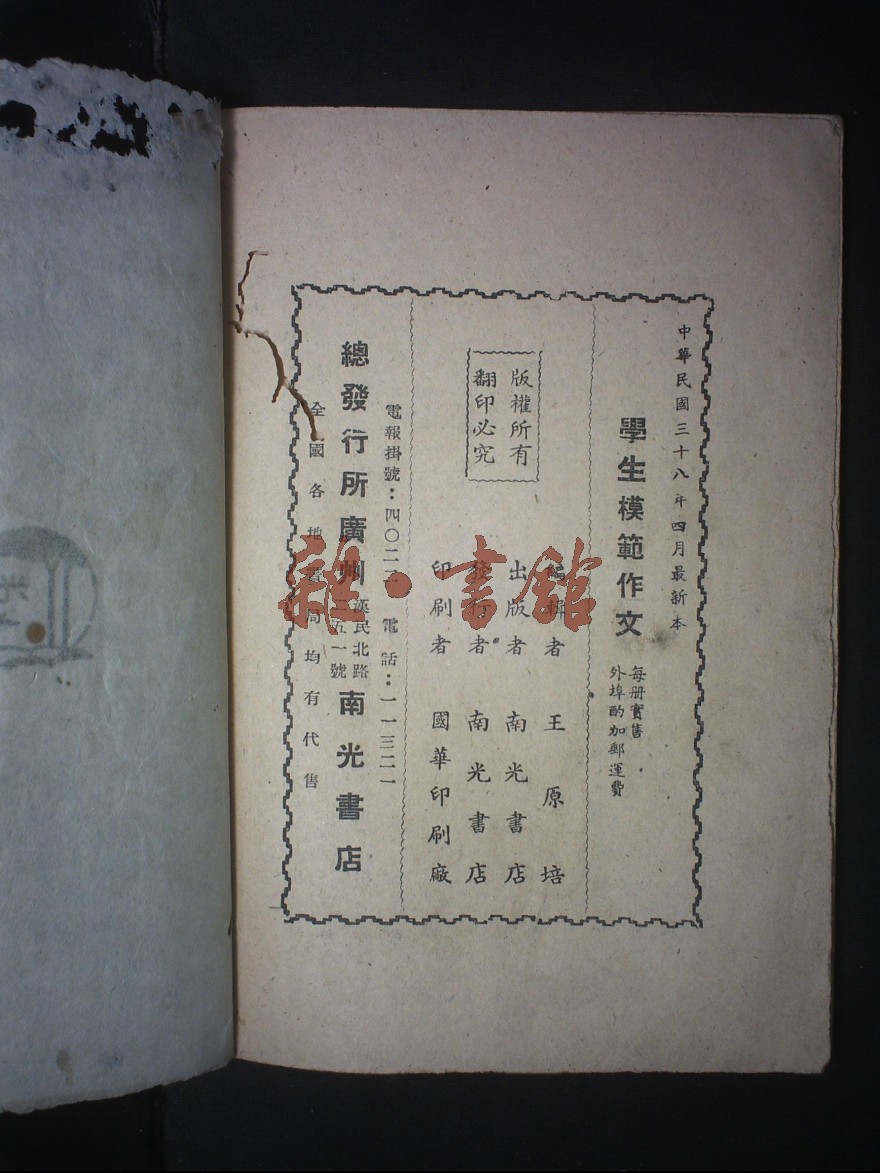 中華民國三十八年四月最新本
學生模範作文
每册實售
外埠酌加郵運費
版權所有
翻印必究
編輯者 王原培
出版者 南光書店
發行者 南光書店
印刷者 國華印刷廠
電報掛號：四〇二 電話：一一三二一
總發行所廣州 漢民北路 五一號 南光書店
全國各地書局均有代售
雜·書館
光